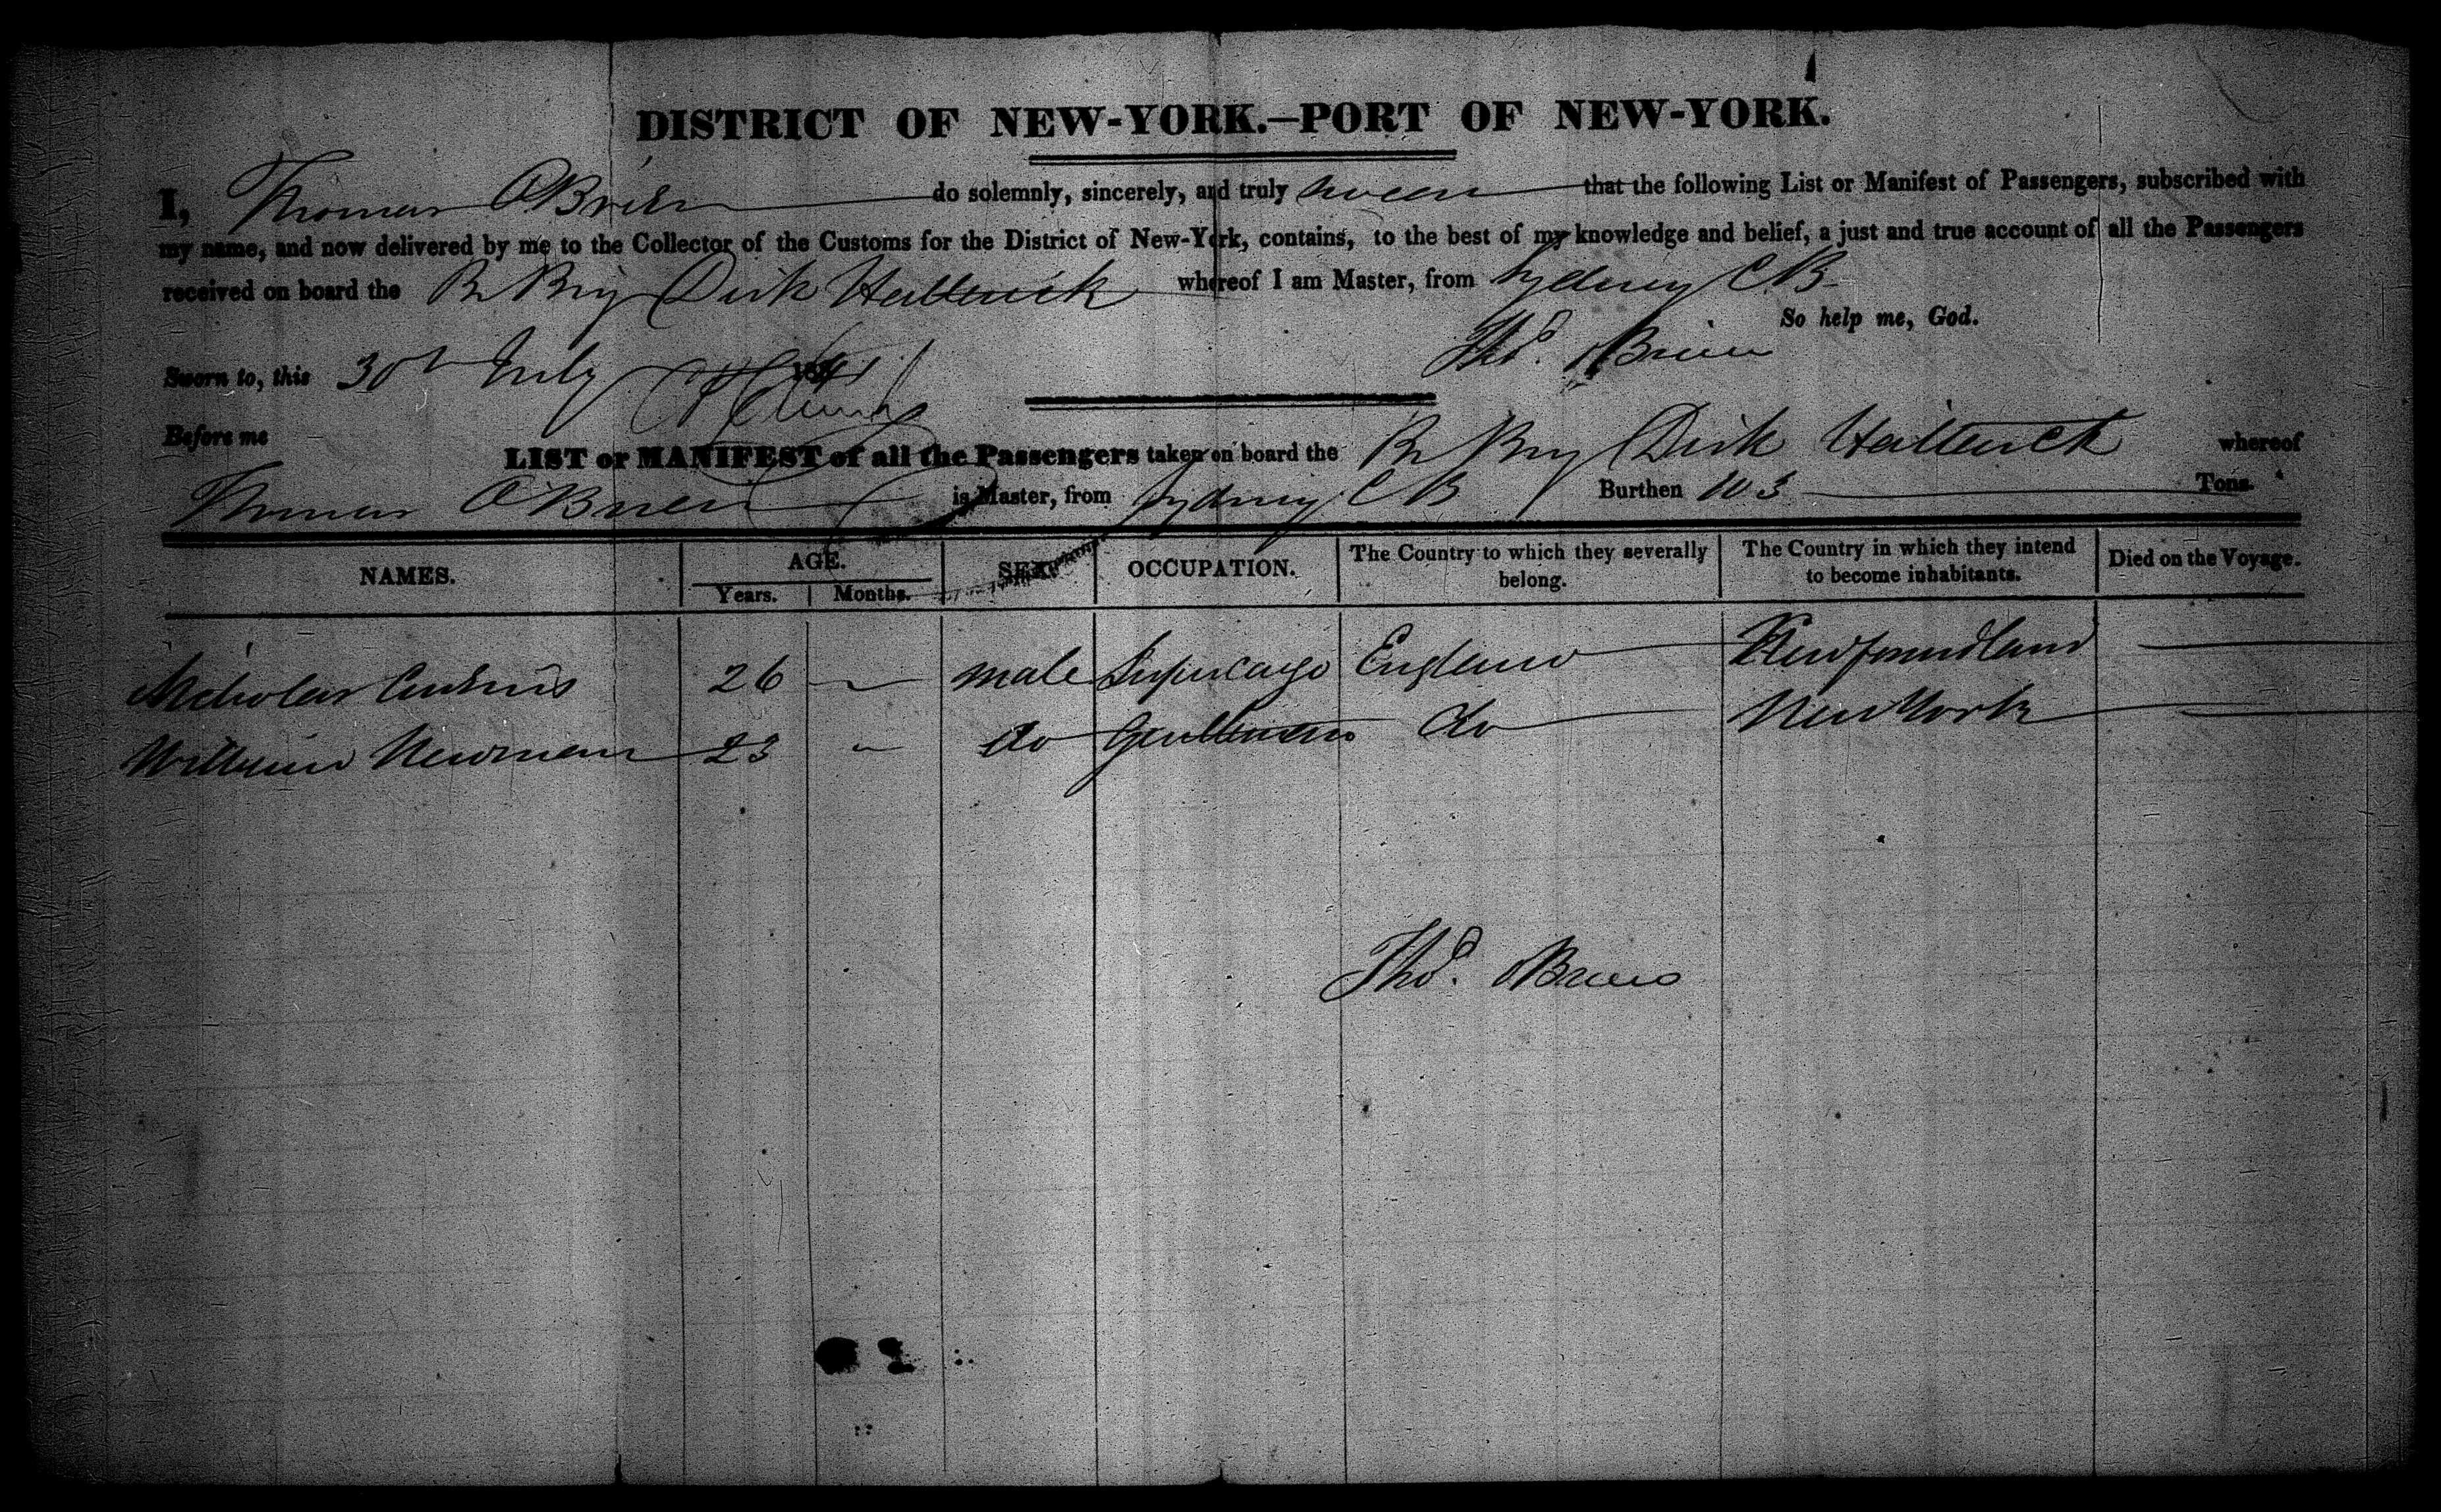 DISTRICT OF NEW-YORK.—PORT OF NEW-YORK.
I, Thomas OBrien do solemnly, sincerely, and truly swear that the following List or Manifest of Passengers, subscribed with
my name, and now delivered by me to the Collector of the Customs for the District of New-York, contains, to the best of my knowledge and belief, a just and true account of all the Passengers
received on board the Br Brig Dirk Hatterick whereof I am Master, from Sydney C B
So help me, God.
Sworn to, this 30th July 1841 Thos. OBrien
Before me
LIST or MANIFEST of all the Passengers taken on board the Br Brig Dirk Hatterick whereof
Thomas OBrien is Master, from Sydney C B Burthen 103 Tons.
NAMES. AGE. SEX. OCCUPATION. The Country to which they severally belong. The Country in which they intend to become inhabitants. Died on the Voyage.
Years. Months.
Nicholas 26 male Supercargo England Newfoundland
William Newman 23 do Gentleman do New York
Thos. OBrien